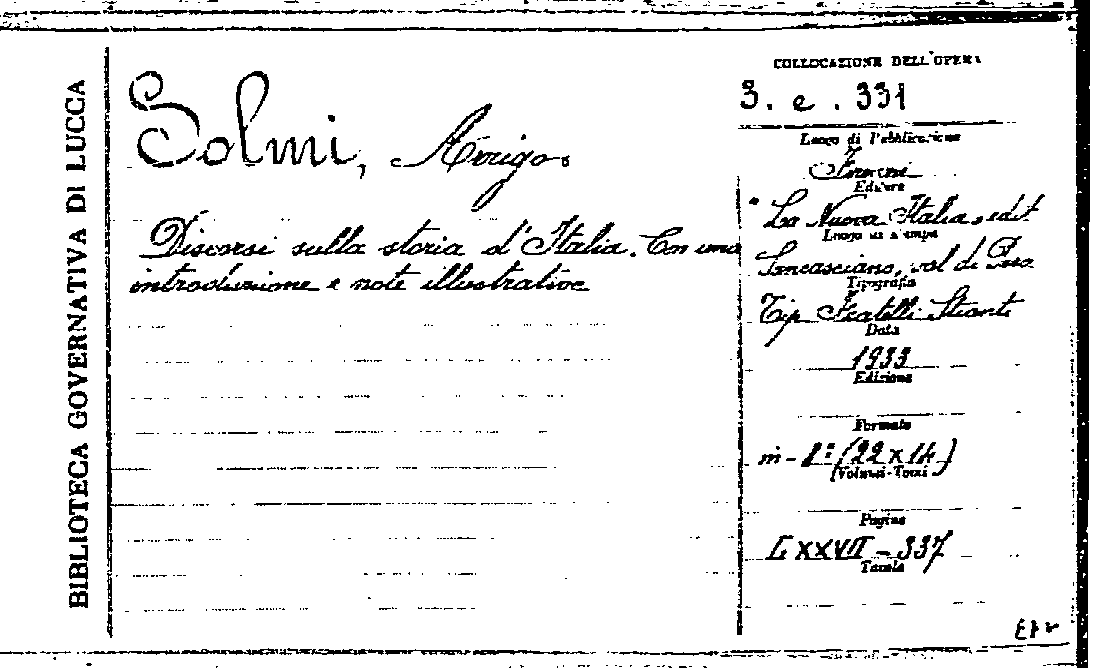 BIBLIOTECA GOVERNATIVA DI LUCCA
Solmi, Arrigo.
Discorsi sulla storia d'Italia. Con una
introduzione e note illustrative
COLLOCAZIONE DELL'OPERA
3. e. 331
Luogo di Pubblicazione
Firenze
Editore
"La Nuova Italia, edit
Luogo di stampa
Sancasciano, val di Pesa
Tipografia
Tip Fratelli Stianti
Data
1933
Edizione
Formato
in-8º (22 x 14)
(Volumi-Tomi)
Pagine
LXXVII - 337
Tavole